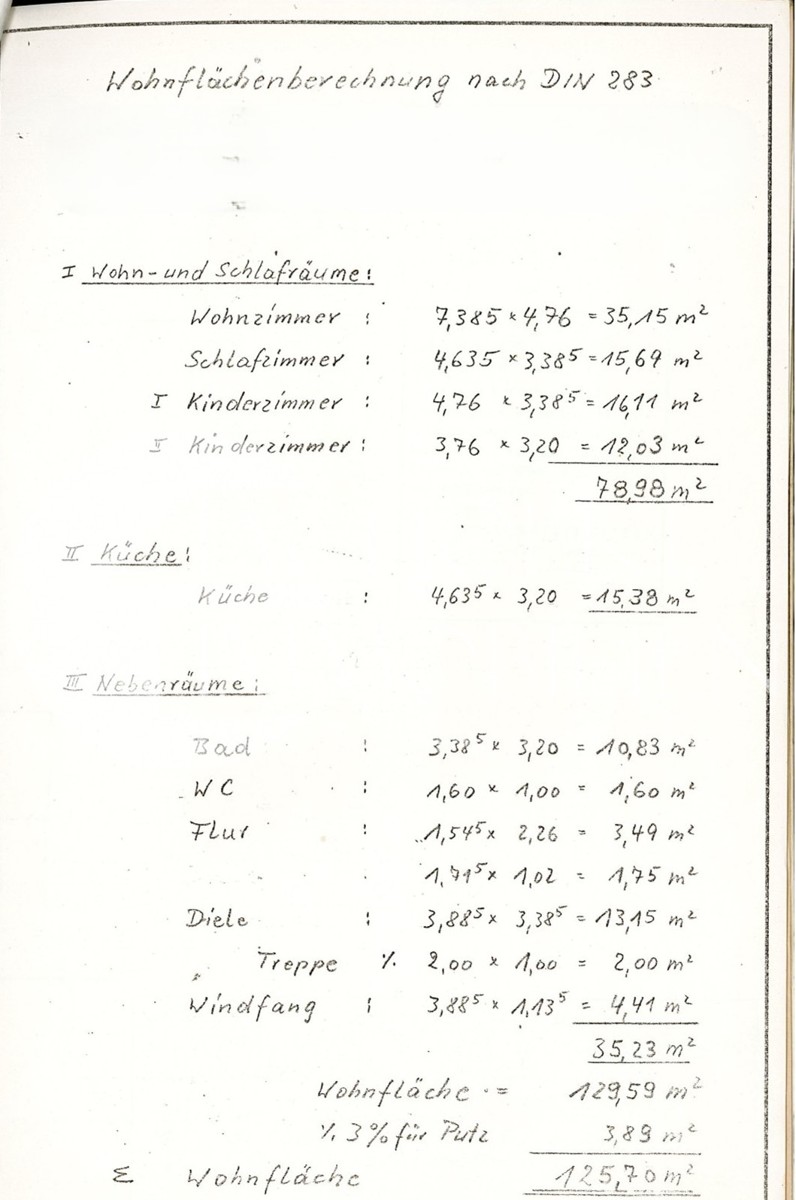 Wohnflächenberechnung nach DIN 283
I Wohn- und Schlafräume:
Wohnzimmer : 7,385 x 4,76 = 35,15 m²
Schlafzimmer : 4,635 x 3,38⁵ = 15,69 m²
I Kinderzimmer : 4,76 x 3,38⁵ = 16,11 m²
II Kinderzimmer : 3,76 x 3,20 = 12,03 m²
78,98 m²
II Küche:
Küche : 4,63⁵ x 3,20 = 15,38 m²
III Nebenräume:
Bad : 3,38⁵ x 3,20 = 10,83 m²
WC : 1,60 x 1,00 = 1,60 m²
Flur : 1,54⁵ x 2,26 = 3,49 m²
1,71⁵ x 1,02 = 1,75 m²
Diele : 3,88⁵ x 3,38⁵ = 13,15 m²
Treppe ⁒ 2,00 x 1,00 = 2,00 m²
Windfang : 3,88⁵ x 1,13⁵ = 4,41 m²
35,23 m²
Wohnfläche = 129,59 m²
⁒ 3% für Putz 3,89 m²
Σ Wohnfläche 125,70 m²